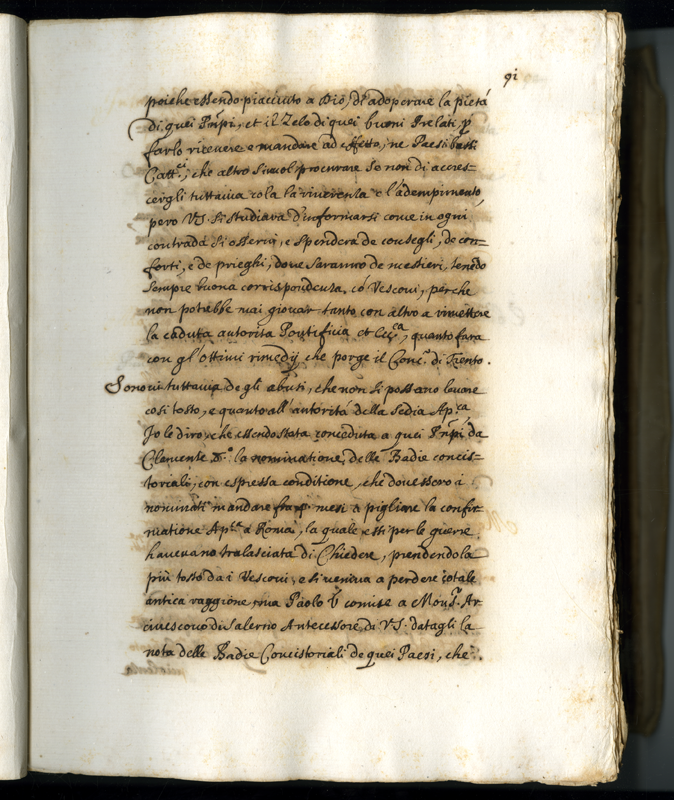 91
poiche essendo piaciuto a Dio, di adoperare la pietá
di quei Pnpi, et il Zelo di quei buoni Prelati, p
farlo ricevere e mandare ad effetto, ne Paesi bassi
Catt.ci, che altro si vuol procurare se non di accres-
cergli tuttavia cola la riverenza e l'adempimento,
pero VS. si studiará d'informarsi come in ogni
contrada si osservi, e spenderá de consegli, de con-
forti, e de prieghi, dove saranno de mestieri, tenedo
sempre buona corrispondenza, co Vescovi, perche
non potrebbe mai giovar tanto con altro a rimettere
la caduta autoritá Pontificia et Ecc.ca, quanto fara
con gl'ottimi rimedij che porge il Conc.o di Trento.
Sonovi tuttavia de gli abusi, che non si possono levare
cosi tosto, e quanto all'autoritá della Sedia Ap.ca
Io le diro, che essendo stata conceduta a quei Pnpi da
Clemente la nominatione, delle Badie concis-
toriali, con espressa conditione, che dovessero i
nominati mandare fra mesi a pigliare la confir
matione Ap.ca á Roma, la quale essi per le guerre
havevano tralasciata di Chiedere, prendendola
piu tosto da i Vescovi, e si veniva a perdere cotale
antica raggione, ma Paolo V comise a Mons.r Ar
civescovo di Salerno Antecessore di VS. datagli la
nota delle Badie Concistoriali de quei Paesi, che